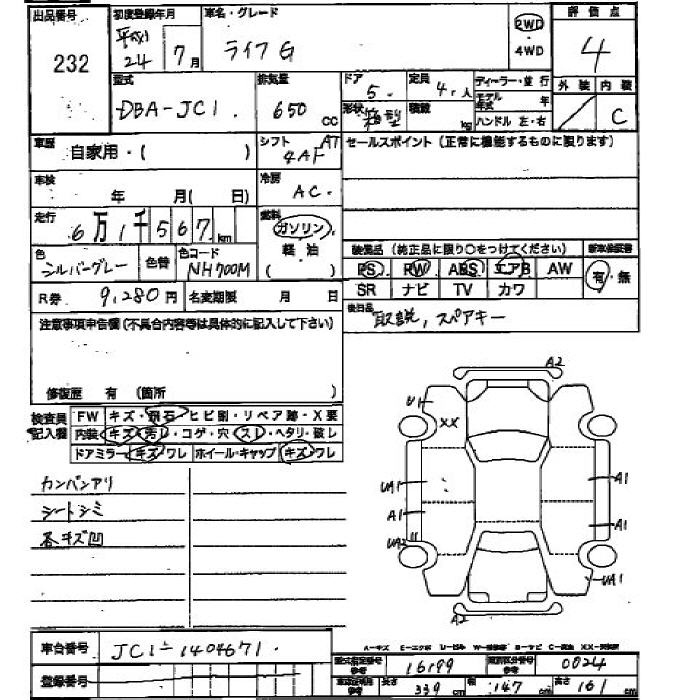 出品番号 初度登録年月 車名・グレード 評価点
232 平成 24年 7月 ライフG 2WD ・4WD 4
型式 排気量 ドア 定員 ディーラー・並行 外装 内装
DBA-JC1 650 CC 5 4人 モデル年式 年 C
形状 箱型 積載 kg ハンドル 左・右
車歴 自家用・( ) シフト AT 4AF セールスポイント(正常に機能するものに限ります)
車検 年 月( 日) 冷房 AC
走行 6万1千567km 燃料 ガソリン 軽油 ( )
装備品(純正品に限り○をつけてください) 新車保証書
色 シルバーグレー 色替 色コード NH700M
PS PW ABS エアB AW 有・無
SR ナビ TV カワ
R券 9,280円 名変期限 月 日 後日品 取説,スペアキー
注意事項申告欄(不具合内容等は具体的に記入して下さい)
修復歴 有 (箇所 )
検査員記入欄 FW キズ・飛石・ヒビ割・リペア跡・X要
内装 キズ・汚レ・コゲ・穴・スレ・ヘタリ・破レ
ドアミラー キズ・ワレ ホイール・キャップ キズ・ワレ
カンバンアリ
シートシミ
各キズ凹
A2
U1
XX
UA1 A1
A1 A1
UA2
UA1
A2
A-キズ E-エクボ U-凹み
車台番号 JC1-1404671
型式指定番号 参考 16199 類別区分番号 参考 0024
登録番号
長さ 339 cm 幅 147 cm 高さ 161 cm